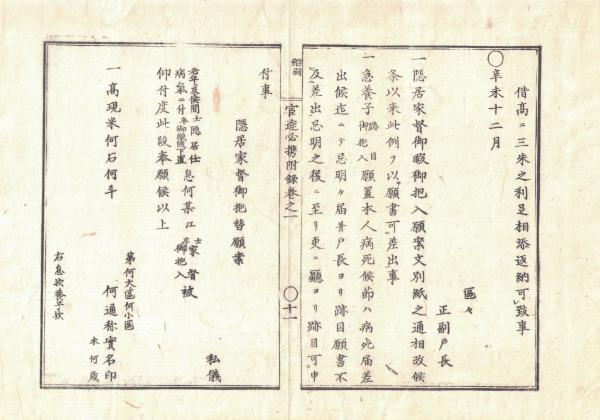 借高ニ三朱之利足相添返納可致事
〇辛未十二月
區々
正副戸長
一隠居家督御暇御抱入願案文別紙之通相改候
条以来此例ヲ以願書可差出事
一急養子跡目御抱入願置本人病死候節ハ病死届差
出候迄ニテ忌明ケ届并戸長ヨリ跡目願書不
及差出忌明之後ニ至リ更ニ廳ヨリ跡目可申
繼嗣
官途必携附録巻之一
〇十一
付事
隠居家督御抱替願案
私儀
老年及候間
病氣ニ付
士隠居仕
息何某江
士家督被
卒御抱入
仰付度此段奉願候以上
第何大區何小區
一高現米何石何斗
何通称實名印
未何歳
右息次養子次